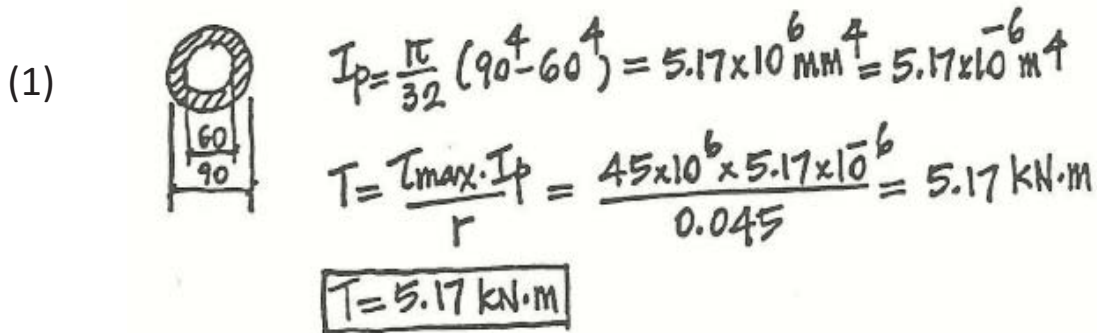 (1)
60
90
Ip = π/32 (90⁴-60⁴) = 5.17x10⁶ mm⁴ = 5.17x10⁻⁶ m⁴
T = τmax·Ip/r = 45x10⁶ x 5.17x10⁻⁶/0.045 = 5.17 kN·m
T = 5.17 kN·m